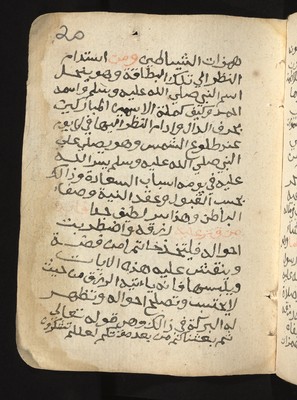 20
همزات الشياطين ومن استدام
النظر الى تلك البطاقة وهو يتخيل
اسم النبي صلى الله عليه وسلم واسمه
احمد وكيف كملة الاسمين المباركين
بحرف الدال وادام النظر اليها في كل يوم
عند طلوع الشمس وهو يصلي على
النبي صلى الله عليه وسلم يسر الله
عليه في يومه اسباب السعادة وذالك
بحسب القبول وعقد النية وصفاء
الباطن وهذا سر لطيف جدا
ومن قتر عليه رزقه واضطربت
احواله فليتخذ خاتما من فضة
وينقش عليه هذه الايات
ويلبسها فانه ياتيه الرزق من حيث
لا يحتسب وتصلح احواله وتظهر
له البركة في ذالك وهي قوله تعالى
ثم بعثناكم من بعد موتكم لعلكم تشكرون